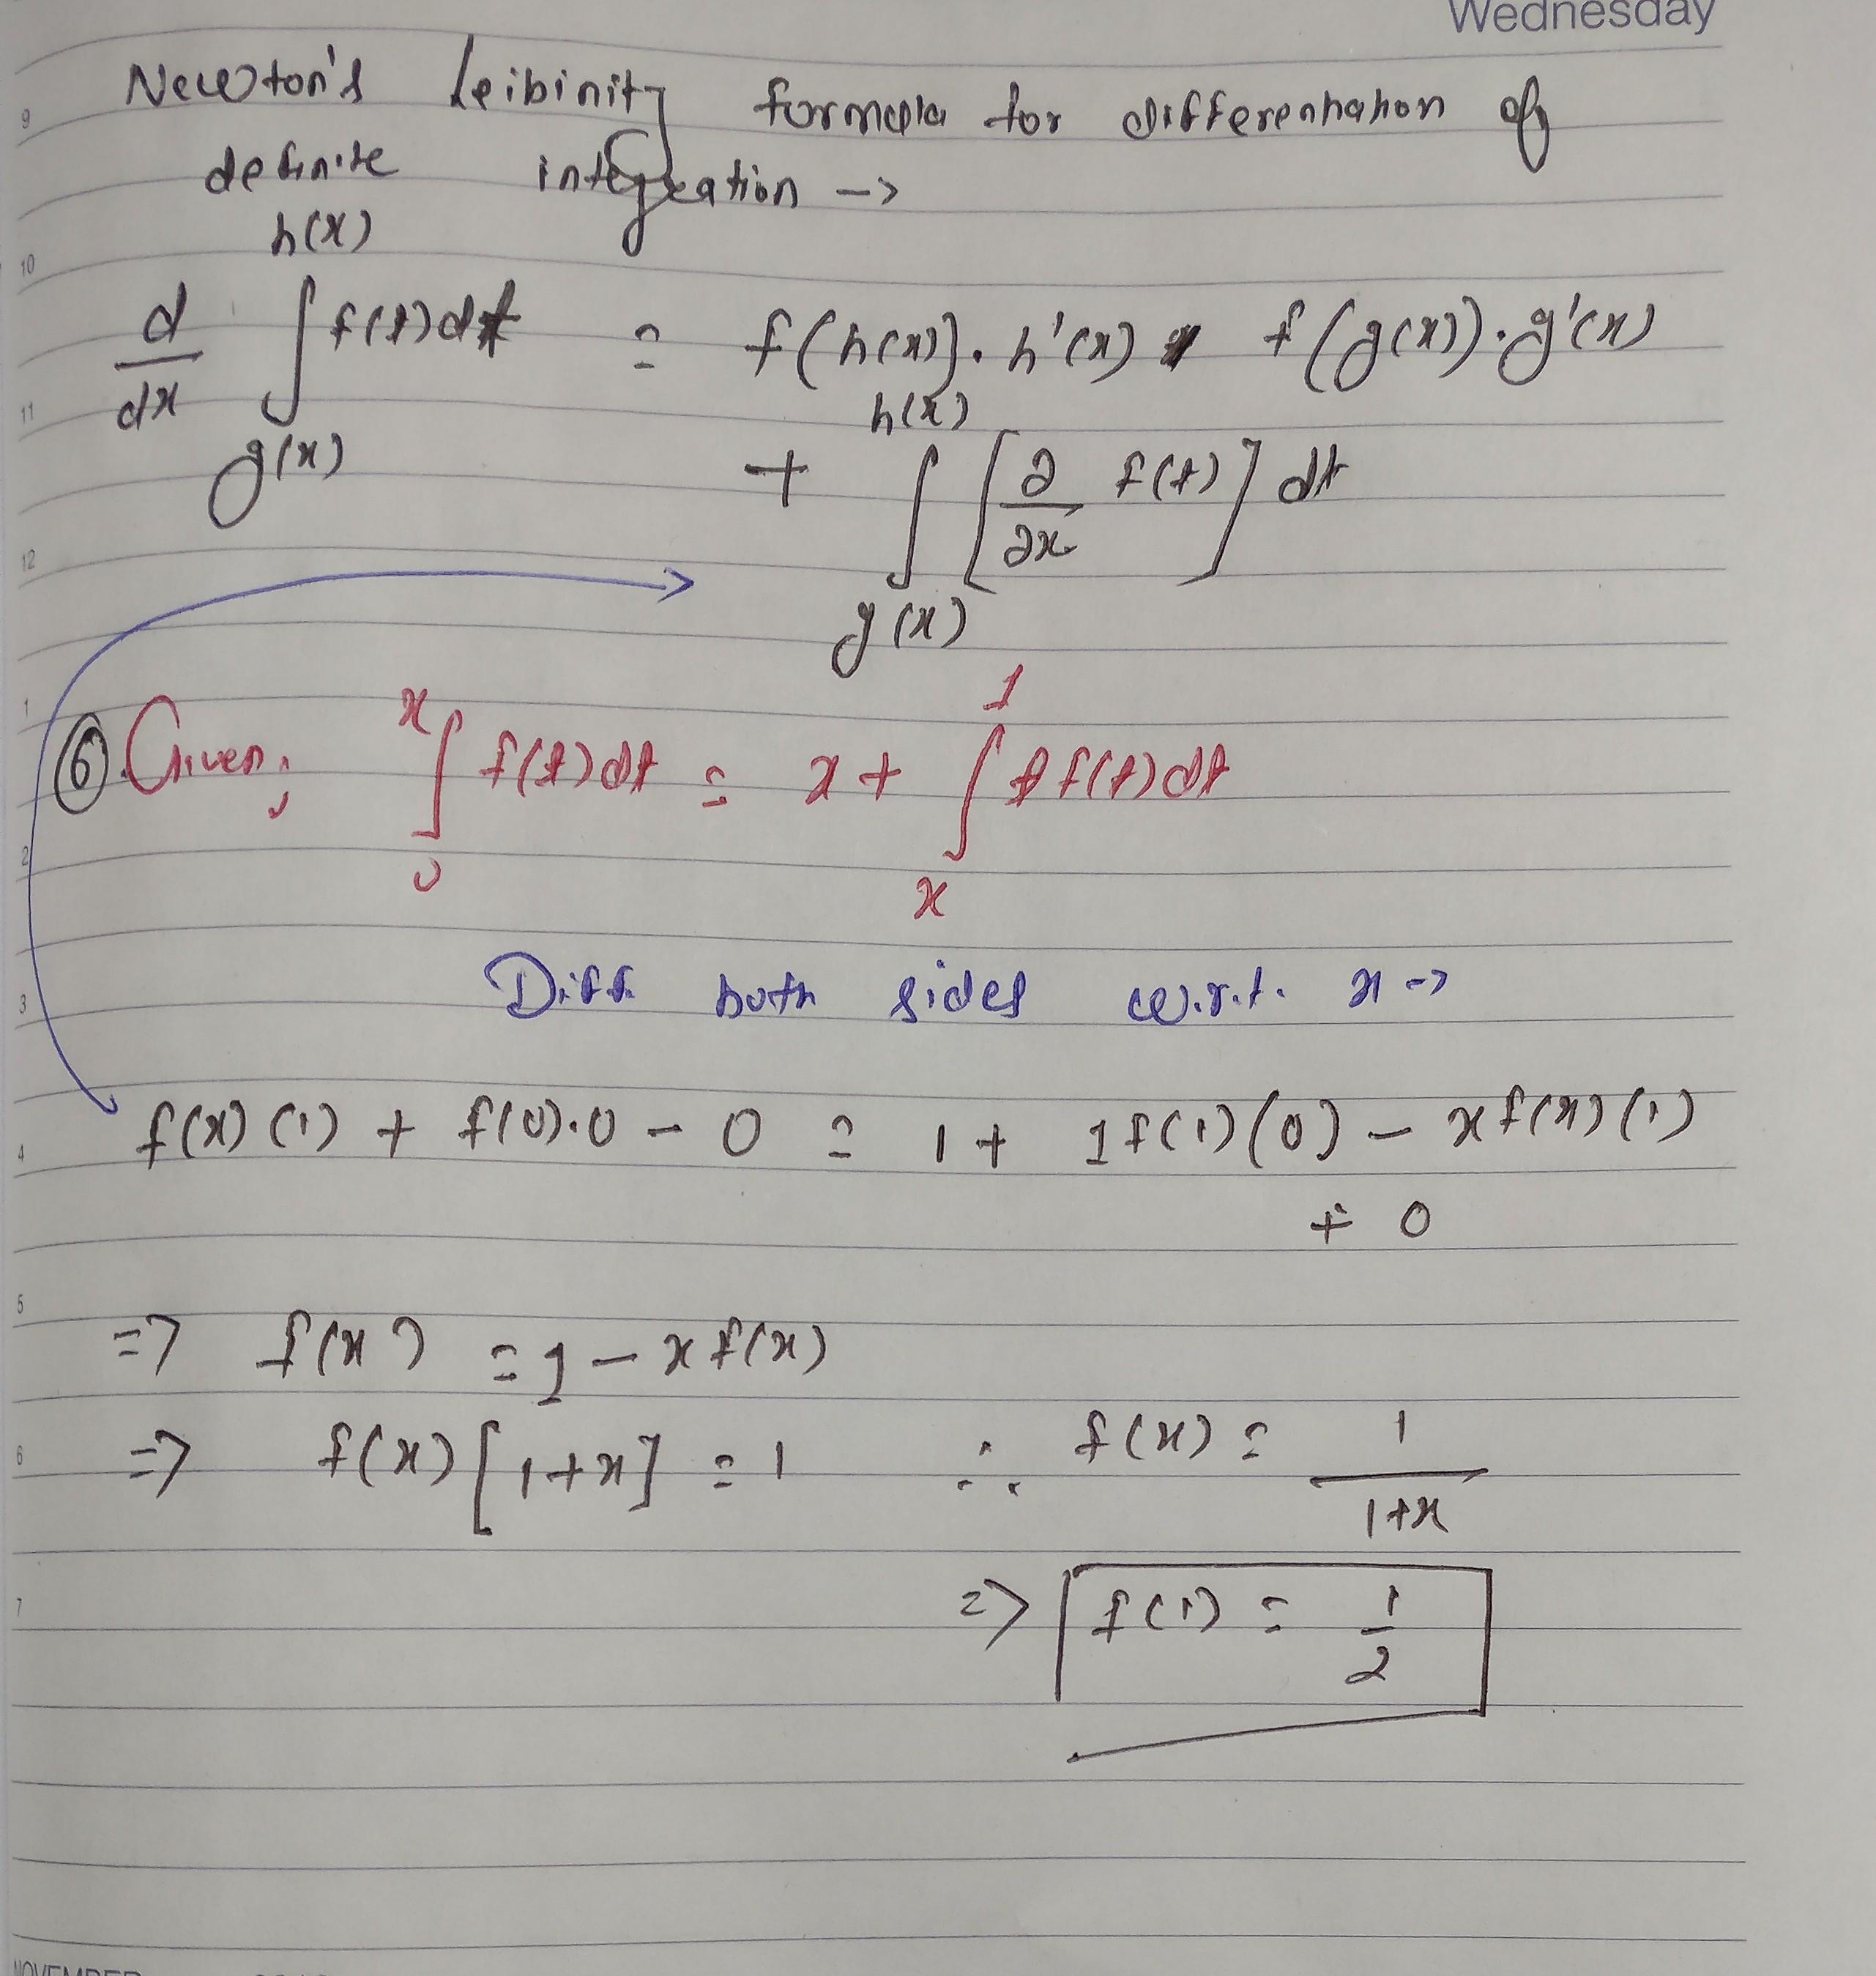 Wednesday
Newton's Leibinitz formula for differentiation of
definite integration ->
d/dx ∫_{g(x)}^{h(x)} f(t)dt = f(h(x)).h'(x) - f(g(x)).g'(x)
+ ∫_{g(x)}^{h(x)} [∂/∂x f(t)] dt
⑥. Given, ∫_0^x f(t)dt = x + ∫_x^1 t f(t)dt
Diff. both sides w.r.t. x ->
f(x)(1) + f(0).0 - 0 = 1 + 1f(1)(0) - xf(x)(1)
+ 0
=> f(x) = 1 - xf(x)
=> f(x)[1+x] = 1 ∴ f(x) = 1/(1+x)
=> f(1) = 1/2
9
10
11
12
1
2
3
4
5
6
7
NOVEMBER